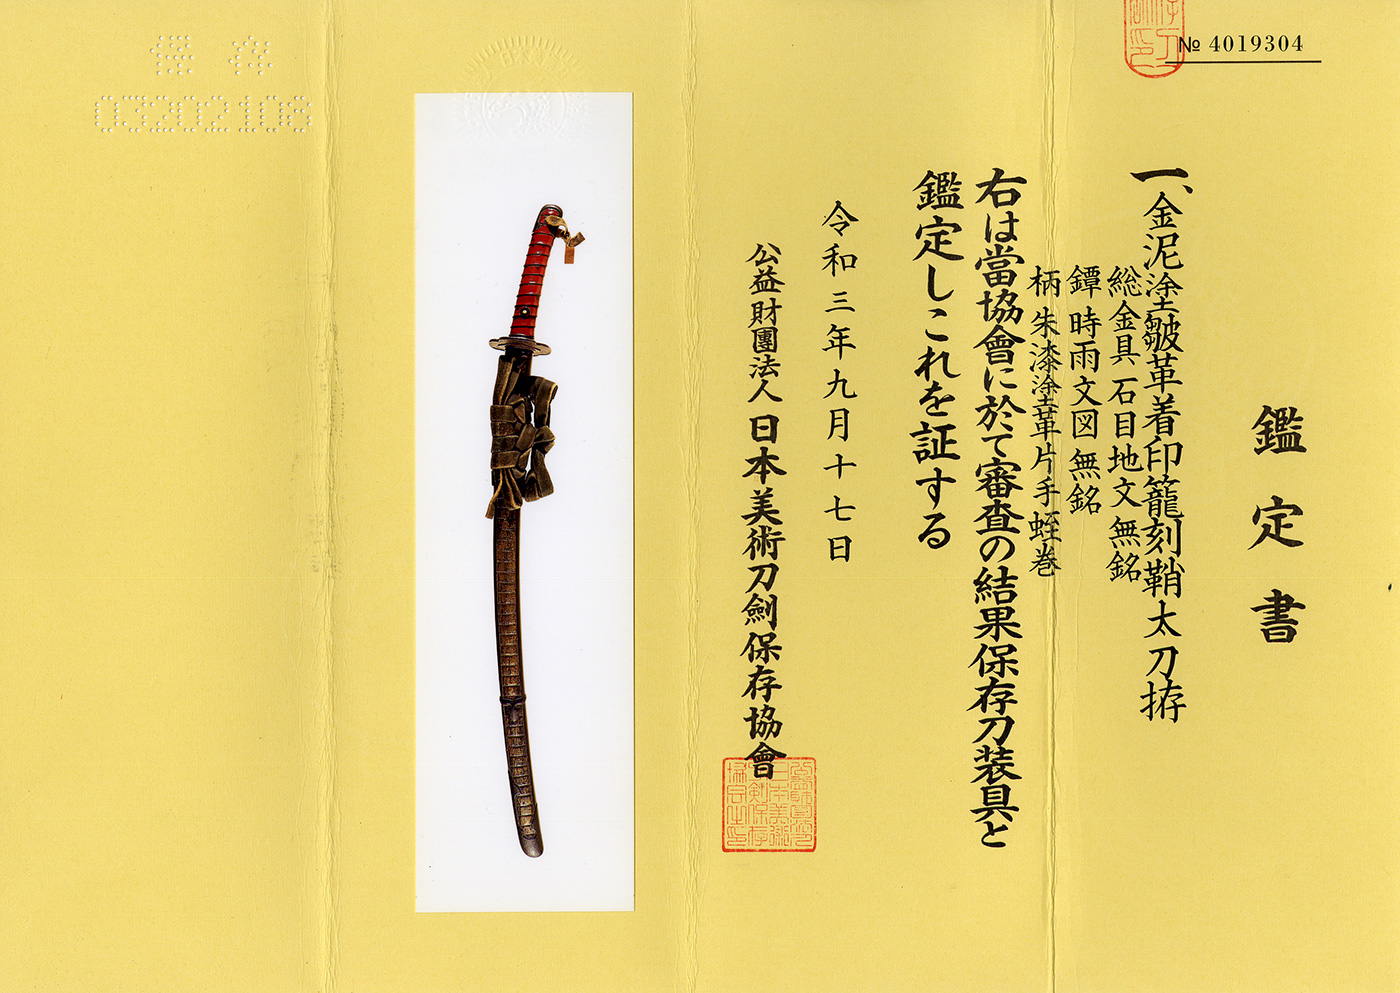 № 4019304
鑑定書
一、金泥塗皺革着印籠刻鞘太刀拵
総金具石目地文無銘
鐔時雨文図無銘
柄朱漆塗革片手蛭巻
右は當協會に於て審査の結果保存刀装具と
鑑定しこれを証する
令和三年九月十七日
公益財團法人日本美術刀劍保存協會
保存
03202108